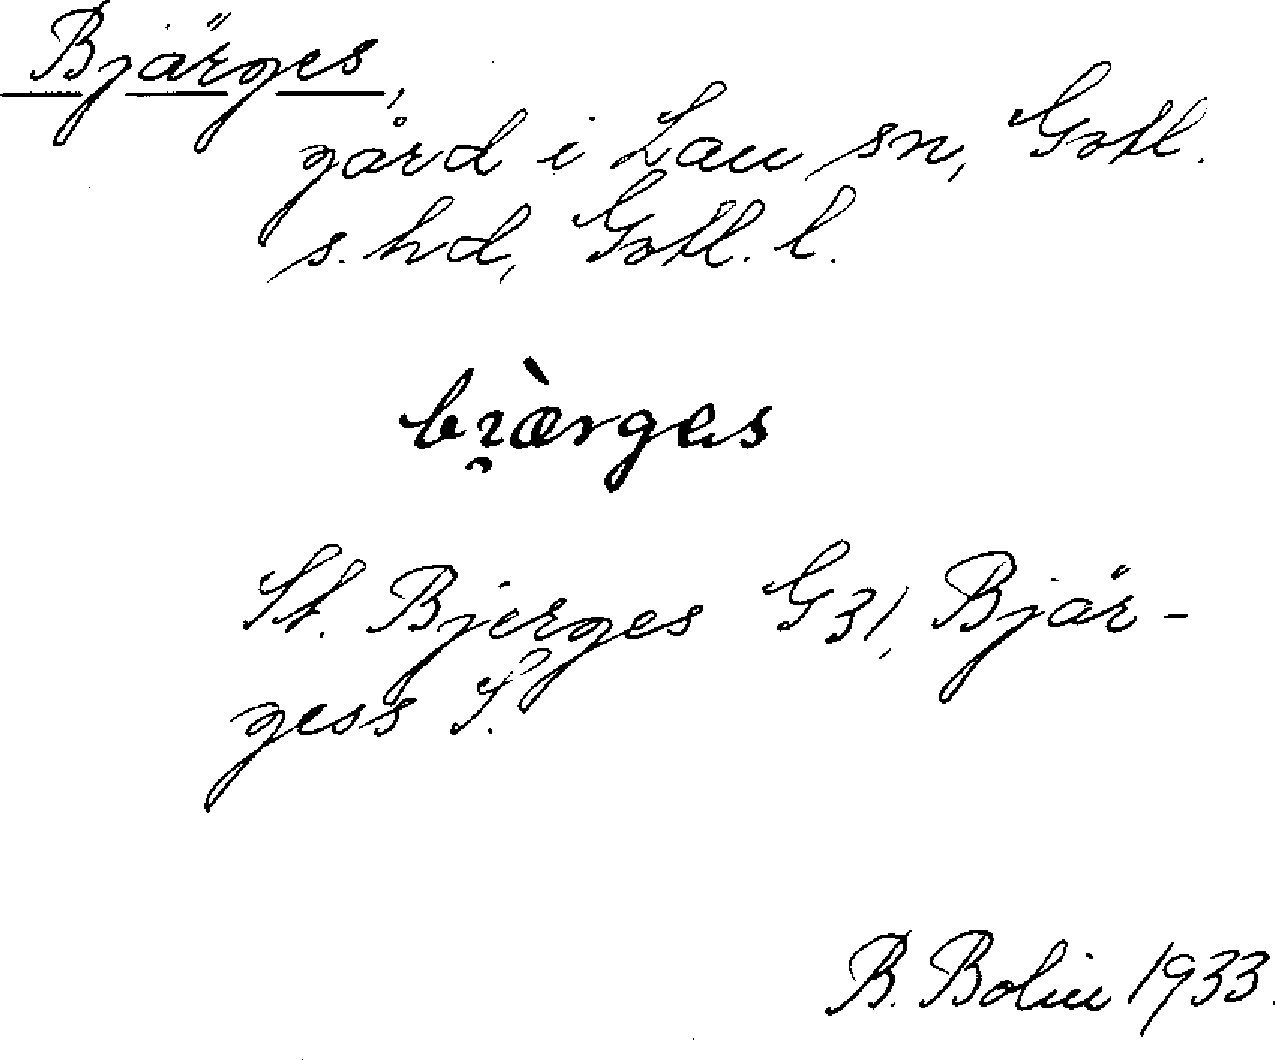 Bjärges,
gård i Lau sn, Gotl.
s. hd, Gotl. l.
St. Bjerges G31, Bjär-
gess S.
B. Bolin 1933.